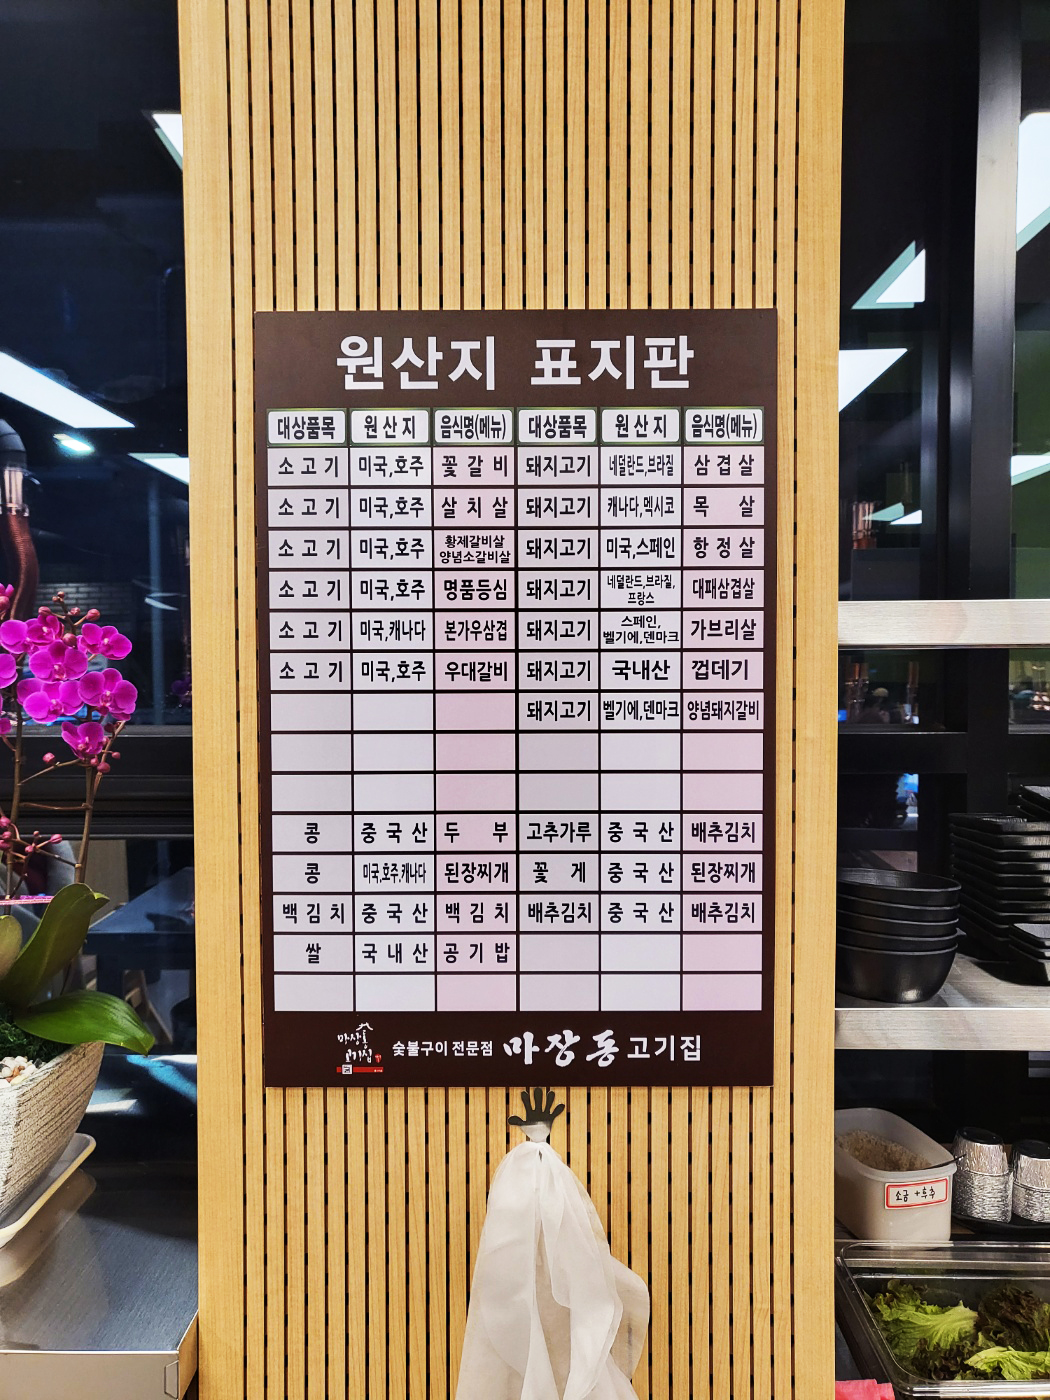 원산지 표지판
대상품목 원산지 음식명(메뉴) 대상품목 원산지 음식명(메뉴)
소고기 미국,호주 꽃갈비 돼지고기 네덜란드,브라질 삼겹살
소고기 미국,호주 살치살 돼지고기 캐나다,멕시코 목살
소고기 미국,호주 황제갈비살 양념소갈비살 돼지고기 미국,스페인 항정살
소고기 미국,호주 명품등심 돼지고기 네덜란드,브라질, 프랑스 대패삼겹살
소고기 미국,캐나다 본가우삼겹 돼지고기 스페인, 벨기에,덴마크 가브리살
소고기 미국,호주 우대갈비 돼지고기 국내산 껍데기
돼지고기 벨기에,덴마크 양념돼지갈비
콩 중국산 두부 고추가루 중국산 배추김치
콩 미국,호주,캐나다 된장찌개 꽃게 중국산 된장찌개
백김치 중국산 백김치 배추김치 중국산 배추김치
쌀 국내산 공기밥
마장동
고기집
숯불구이 전문점 마장동 고기집
소금+후추